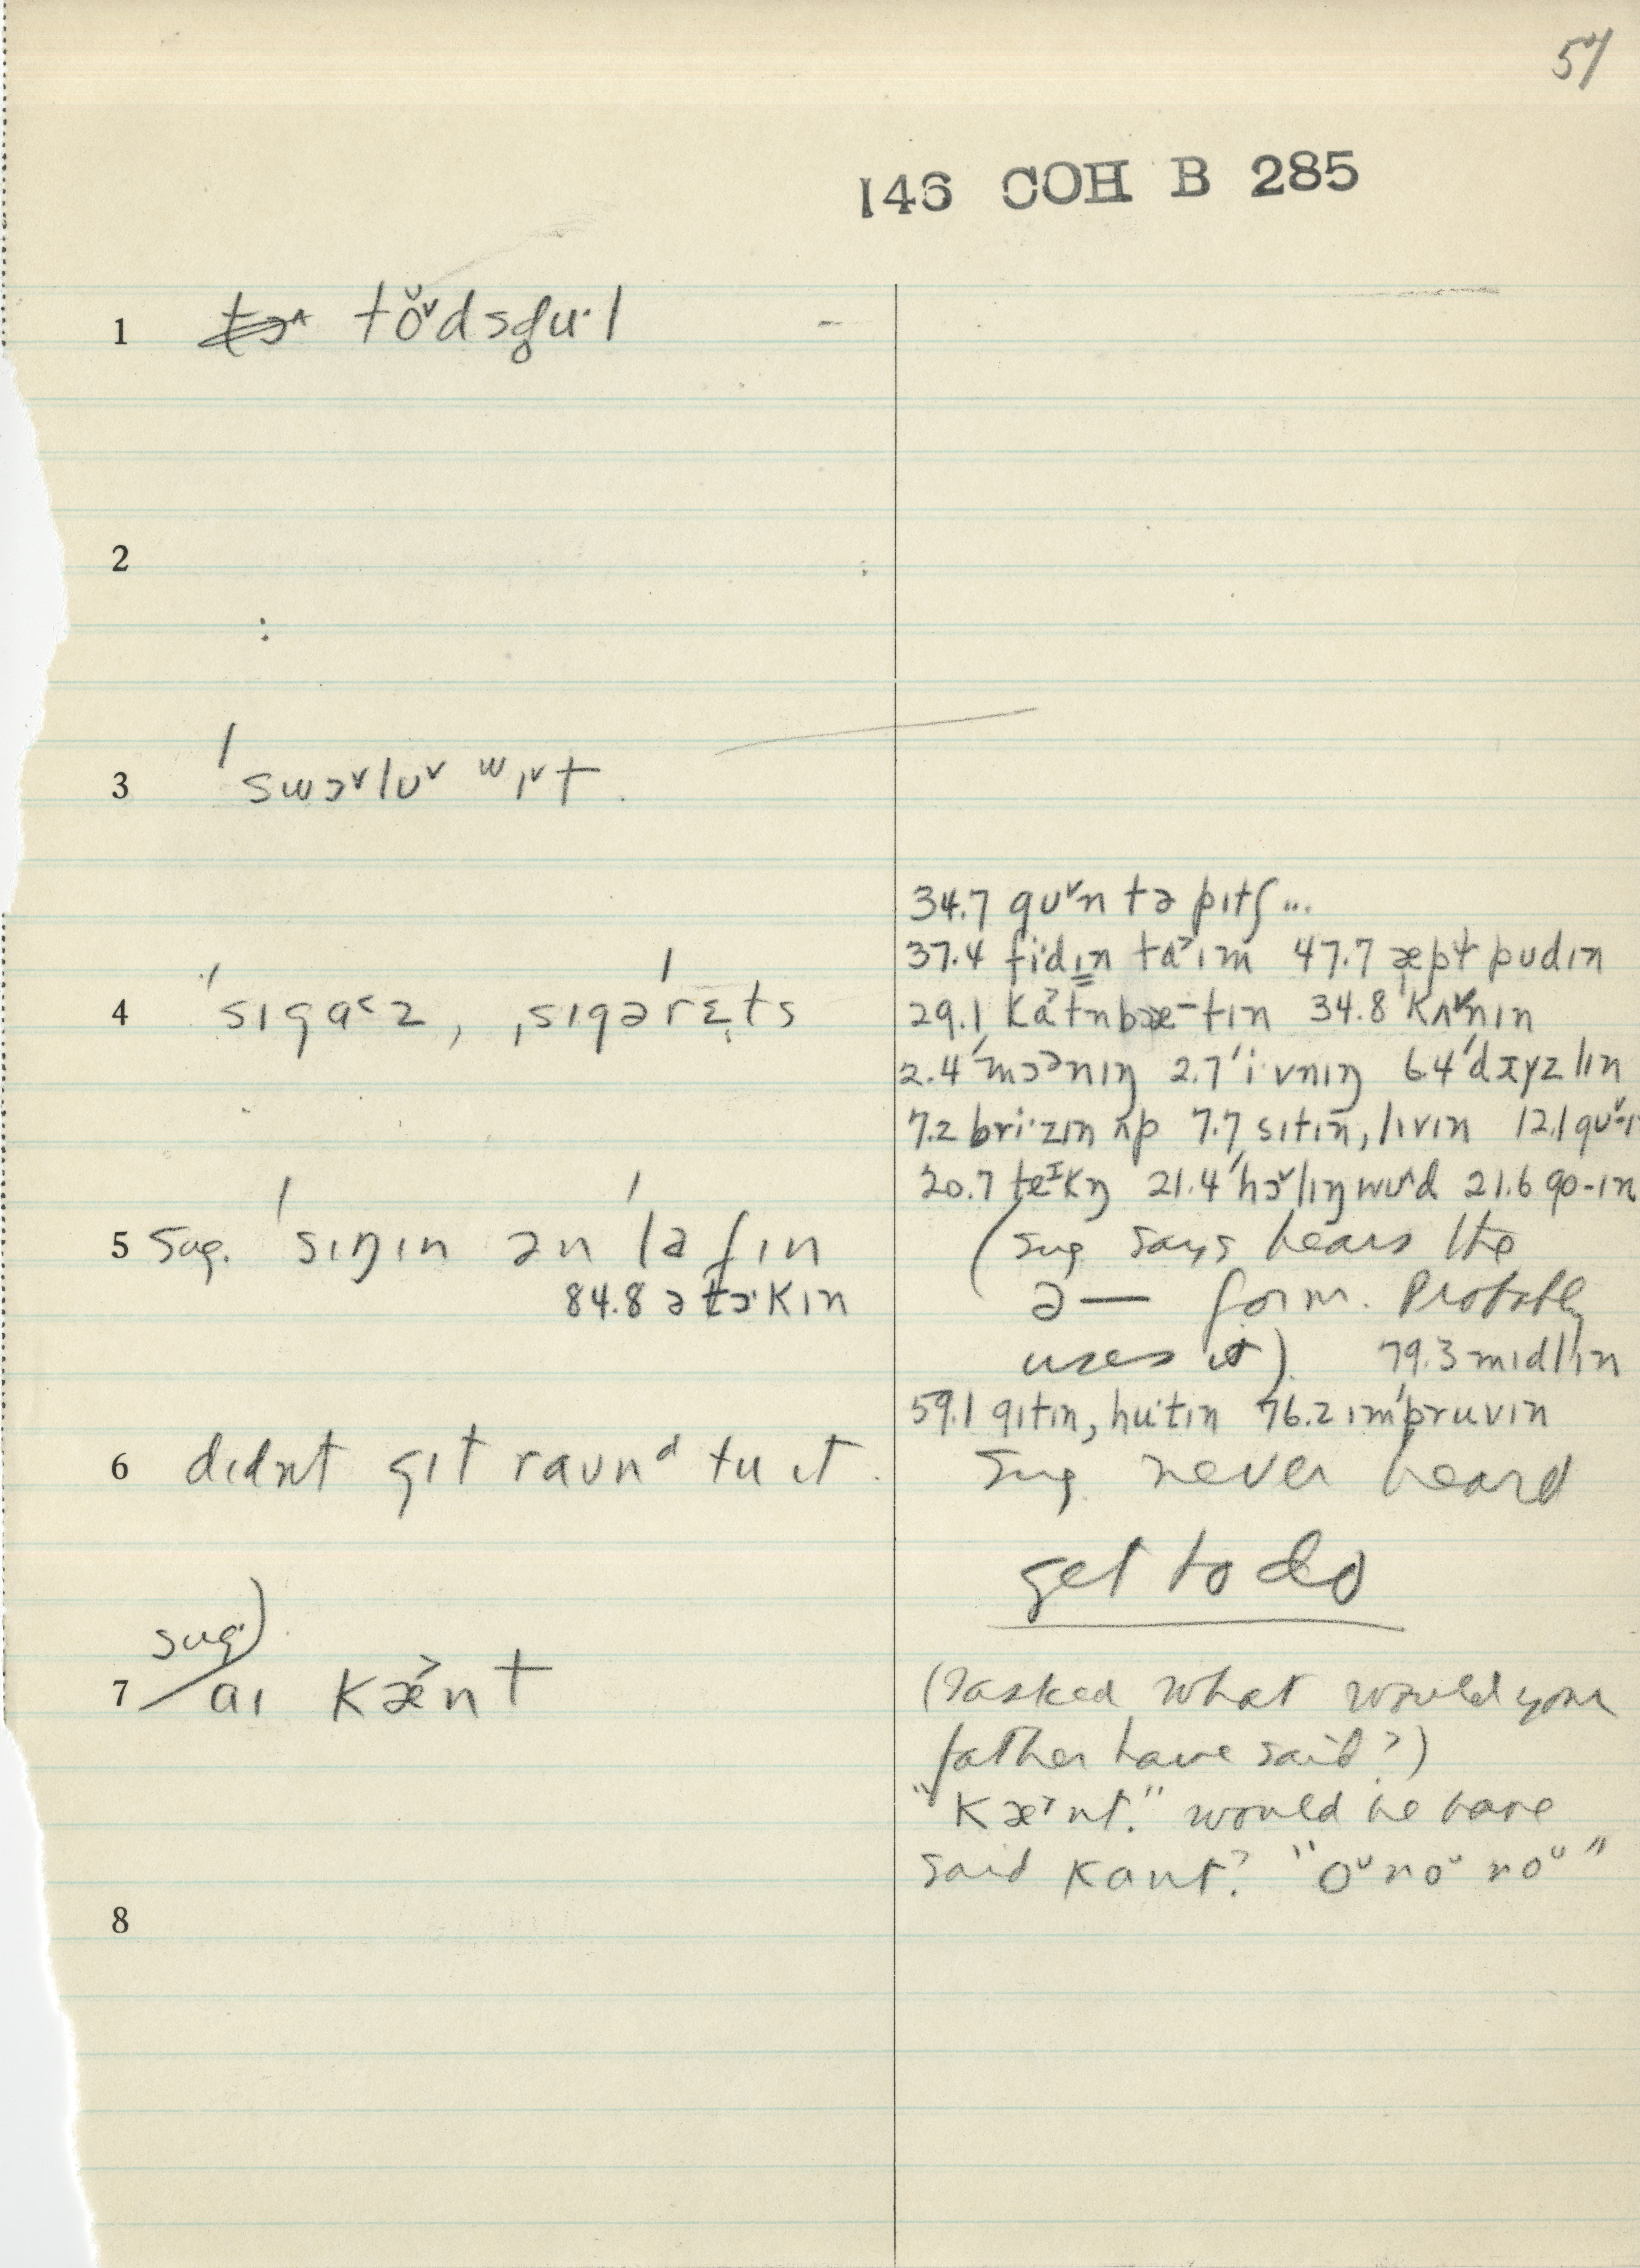 57
146 COH B 285
1 to̬ˇdsgu·l
2
3 ˈswɔˇluˇ ʷɪˇt.
4 ˈsɪgɑ˂z, ˌsɪgəˈrɛts
5 Sug. ˈsɪŋɪn ən ˈlafɪn
84.8 ətɔ·kɪn
6 dɪdnt gɪt raunᵈ tu ɪt.
sug)
7 aɪ kæ˃nt
8
34.7 guˇn tə pɪtʃ...
37.4 fi·dɪn ta˃ɪm 47.7 æpɫ pudɪn
29.1 ka˃tnbæ-tɪn 34.8 ˈkʌˇnɪn
2.4 ˈmɔᵊnɪŋ 2.7 ˈi·vnɪŋ 6.4
7.2 bri·zɪn ʌp 7.7 sɪtɪn, lɪvɪn 12.1
20.7 teᴵkŋ 21.4 ˈhɔˇlɪŋwud 21.6 go-ɪn
(sug says hears the
ə— form. Probably
uses it). 79.3 mɪdlɪn
59.1 gɪtɪn, hu·tɪn 76.2 ɪmˈpruvɪn
Sug. never heard
get to do
(I asked what would your
father have said?)
"kæ˃nt." would he have
said kant? "oᵘ noᵘ noᵘ"